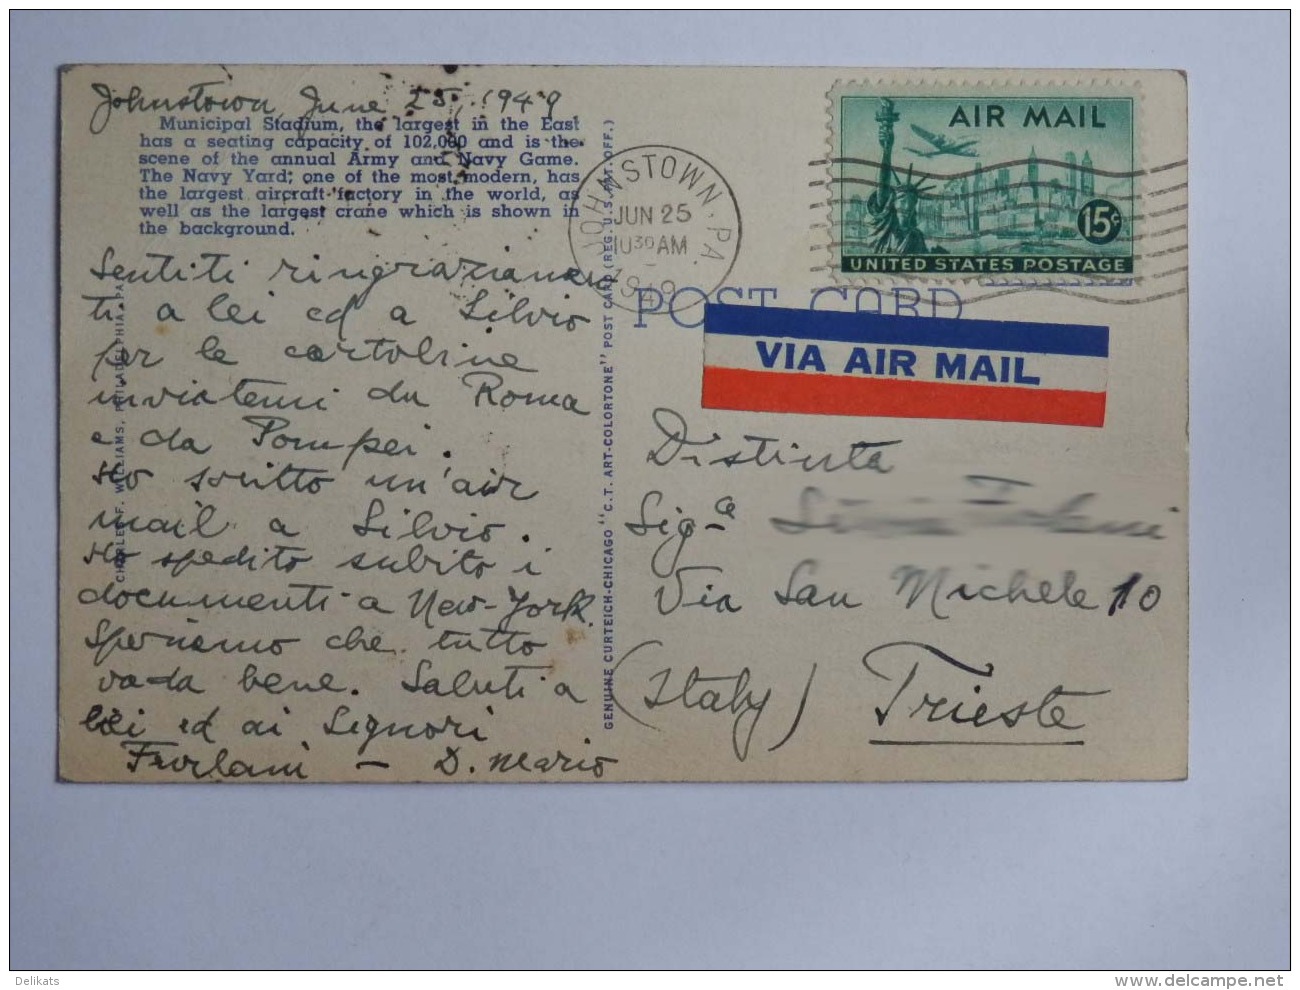 Johnstown, June 25. 1949
Municipal Stadium, the largest in the East
has a seating capacity of 102,000 and is the
scene of the annual Army and Navy Game.
The Navy Yard; one of the most modern, has
the largest aircraft factory in the world, as
well as the largest crane which is shown in
the background.
Sentiti ringraziamen
ti a lei ed a Silvio
per le cartoline
inviatemi da Roma
e da Pompei.
Ho scritto un'air
mail a Silvio.
Ho spedito subito i
documenti a New-York.
Speriamo che tutto
vada bene. Saluti a
lei ed ai Signori
Furlani – D. Mario
CHARLES F. WILLIAMS, PHILADELPHIA, PA.
GENUINE CURTEICH-CHICAGO "C.T. ART-COLORTONE" POST CARD (REG. U.S. PAT. OFF.)
JOHNSTOWN, PA.
JUN 25
10 30 AM
1949
AIR MAIL
15¢
UNITED STATES POSTAGE
POST CARD
VIA AIR MAIL
Distinta
Sig-a
Via San Michele 10
(Italy) Trieste
Delikats
www.delcampe.net